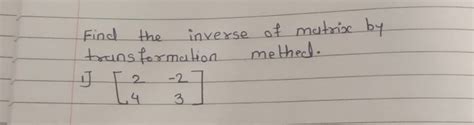 Find the inverse of matrix by
transformation methed.
1] [ 2 -2
4 3 ]